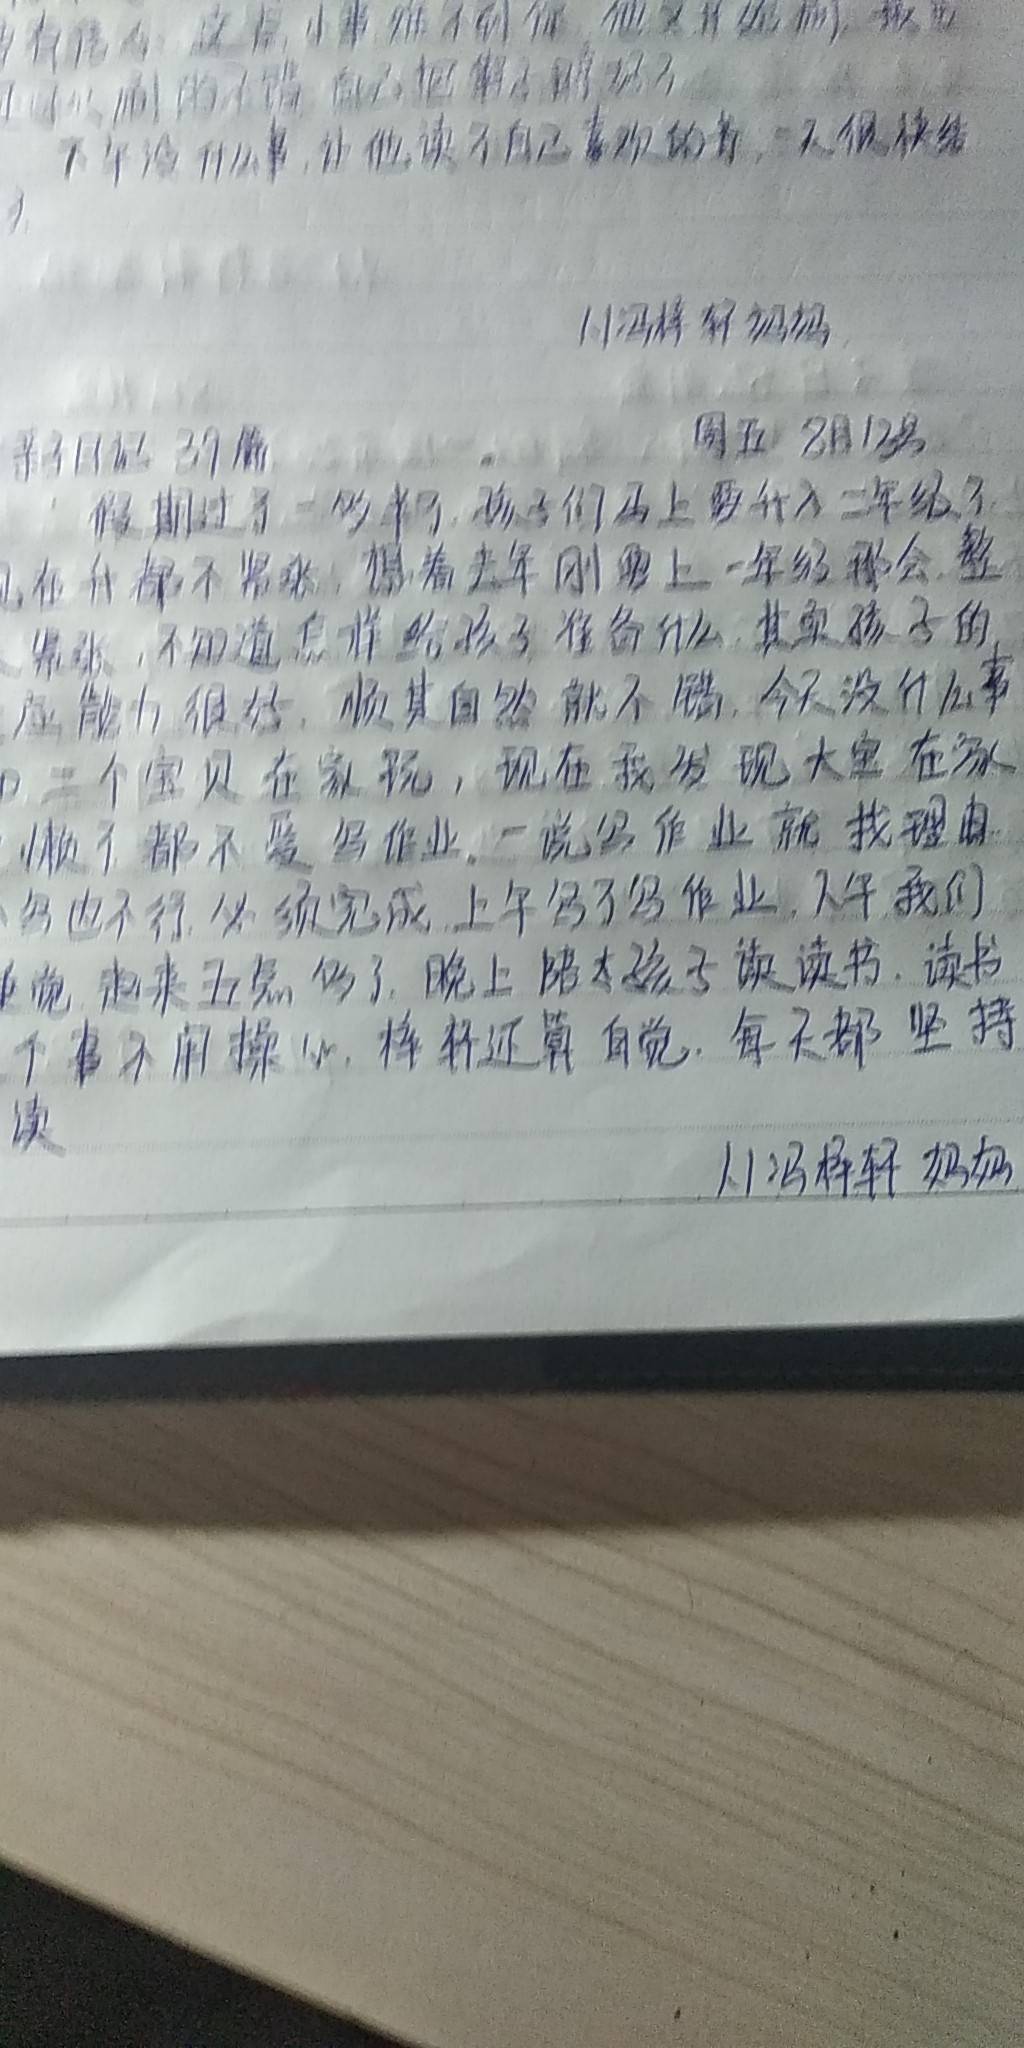 有信心 这点小事难不到你 他又开始刷 我也
刷的不错 自己把鞋子刷好了
下午没什么事，让他读了自己喜欢的书，一天很快结
了
1.1冯梓轩妈妈
亲子日记 39篇 周五 8月12号
假期过了一多半了，孩子们马上要升入二年级了
现在什都不紧张，想着去年刚要上一年级那会，整
紧张，不知道怎样给孩子准备什么，其实孩子的
应能力很好，顺其自然就不错，今天没什么事
和二个宝贝在家玩，现在我发现大宝在家
懒了都不爱写作业，一说写作业就找理由
写也不行，必须完成，上午写了写作业，下午我们
睡觉，起来五点多了，晚上陪大孩子读读书，读书
个事不用操心，梓轩还算自觉，每天都坚持
读
1.1冯梓轩妈妈